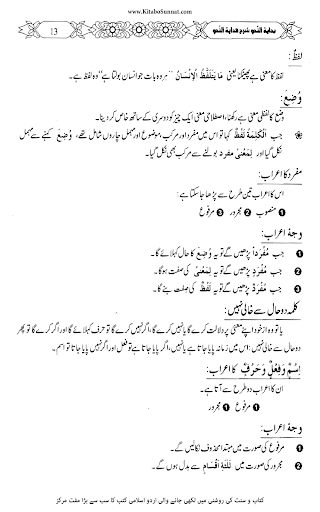 www.KitaboSunnat.com
بداية النحو شرح هداية النحو
13
لفظ:
لفظ کا معنی ہے پھینکنا یعنی مَا يَتَلَفَّظُ الْإِنْسَانُ ”ہر وہ بات جو انسان بولتا ہے“ وہ لفظ ہے۔
وُضِعَ:
وضع کا لفظی معنی ہے رکھنا، اصطلاحی معنی ایک چیز کو دوسری کے ساتھ خاص کر دینا۔
جب الْكَلِمَةُ لَفْظٌ کہا تو اس میں مفرد اور مرکب، موضوع اور مہمل چاروں شامل تھے، وُضِعَ کہنے سے مہمل
نکل گیا اور لِمَعْنًى مفرد بولنے سے مرکب بھی نکل گیا۔
مفرد کا اعراب:
اس کا اعراب تین طرح سے پڑھا جا سکتا ہے:
❶ منصوب ❷ مجرور ❸ مرفوع
وجۂ اعراب:
❶ جب مُفْرَدًا پڑھیں گے تو یہ وُضِعَ کا حال کہلائے گا۔
❷ جب مُفْرَدٍ پڑھیں گے تو یہ لِمَعْنًى کی صفت ہوگا۔
❸ جب مُفْرَدٌ پڑھیں گے تو یہ لَفْظٌ کی صفت بنے گا۔
کلمہ دو حال سے خالی نہیں:
یا تو وہ از خود اپنے معنی پر دلالت کرے گا یا نہیں کرے گا، اگر نہیں کرے گا تو حرف کہلائے گا اور اگر کرے گا تو پھر
دو حال سے خالی نہیں: اس میں زمانہ پایا جاتا ہے یا نہیں، اگر پایا جاتا ہے تو فعل اور اگر نہیں پایا جاتا تو اسم۔
اِسْمٌ وَفِعْلٌ وَحَرْفٌ کا اعراب:
ان کا اعراب دو طرح سے آتا ہے۔
❶ مرفوع ❷ مجرور
وجۂ اعراب:
❶ مرفوع کی صورت میں مبتدا محذوف نکالیں گے۔
❷ مجرور کی صورت میں ثَلٰثَةِ اَقْسَامٍ سے بدل ہوں گے۔
کتاب و سنت کی روشنی میں لکھی جانے والی اردو اسلامی کتب کا سب سے بڑا مفت مرکز